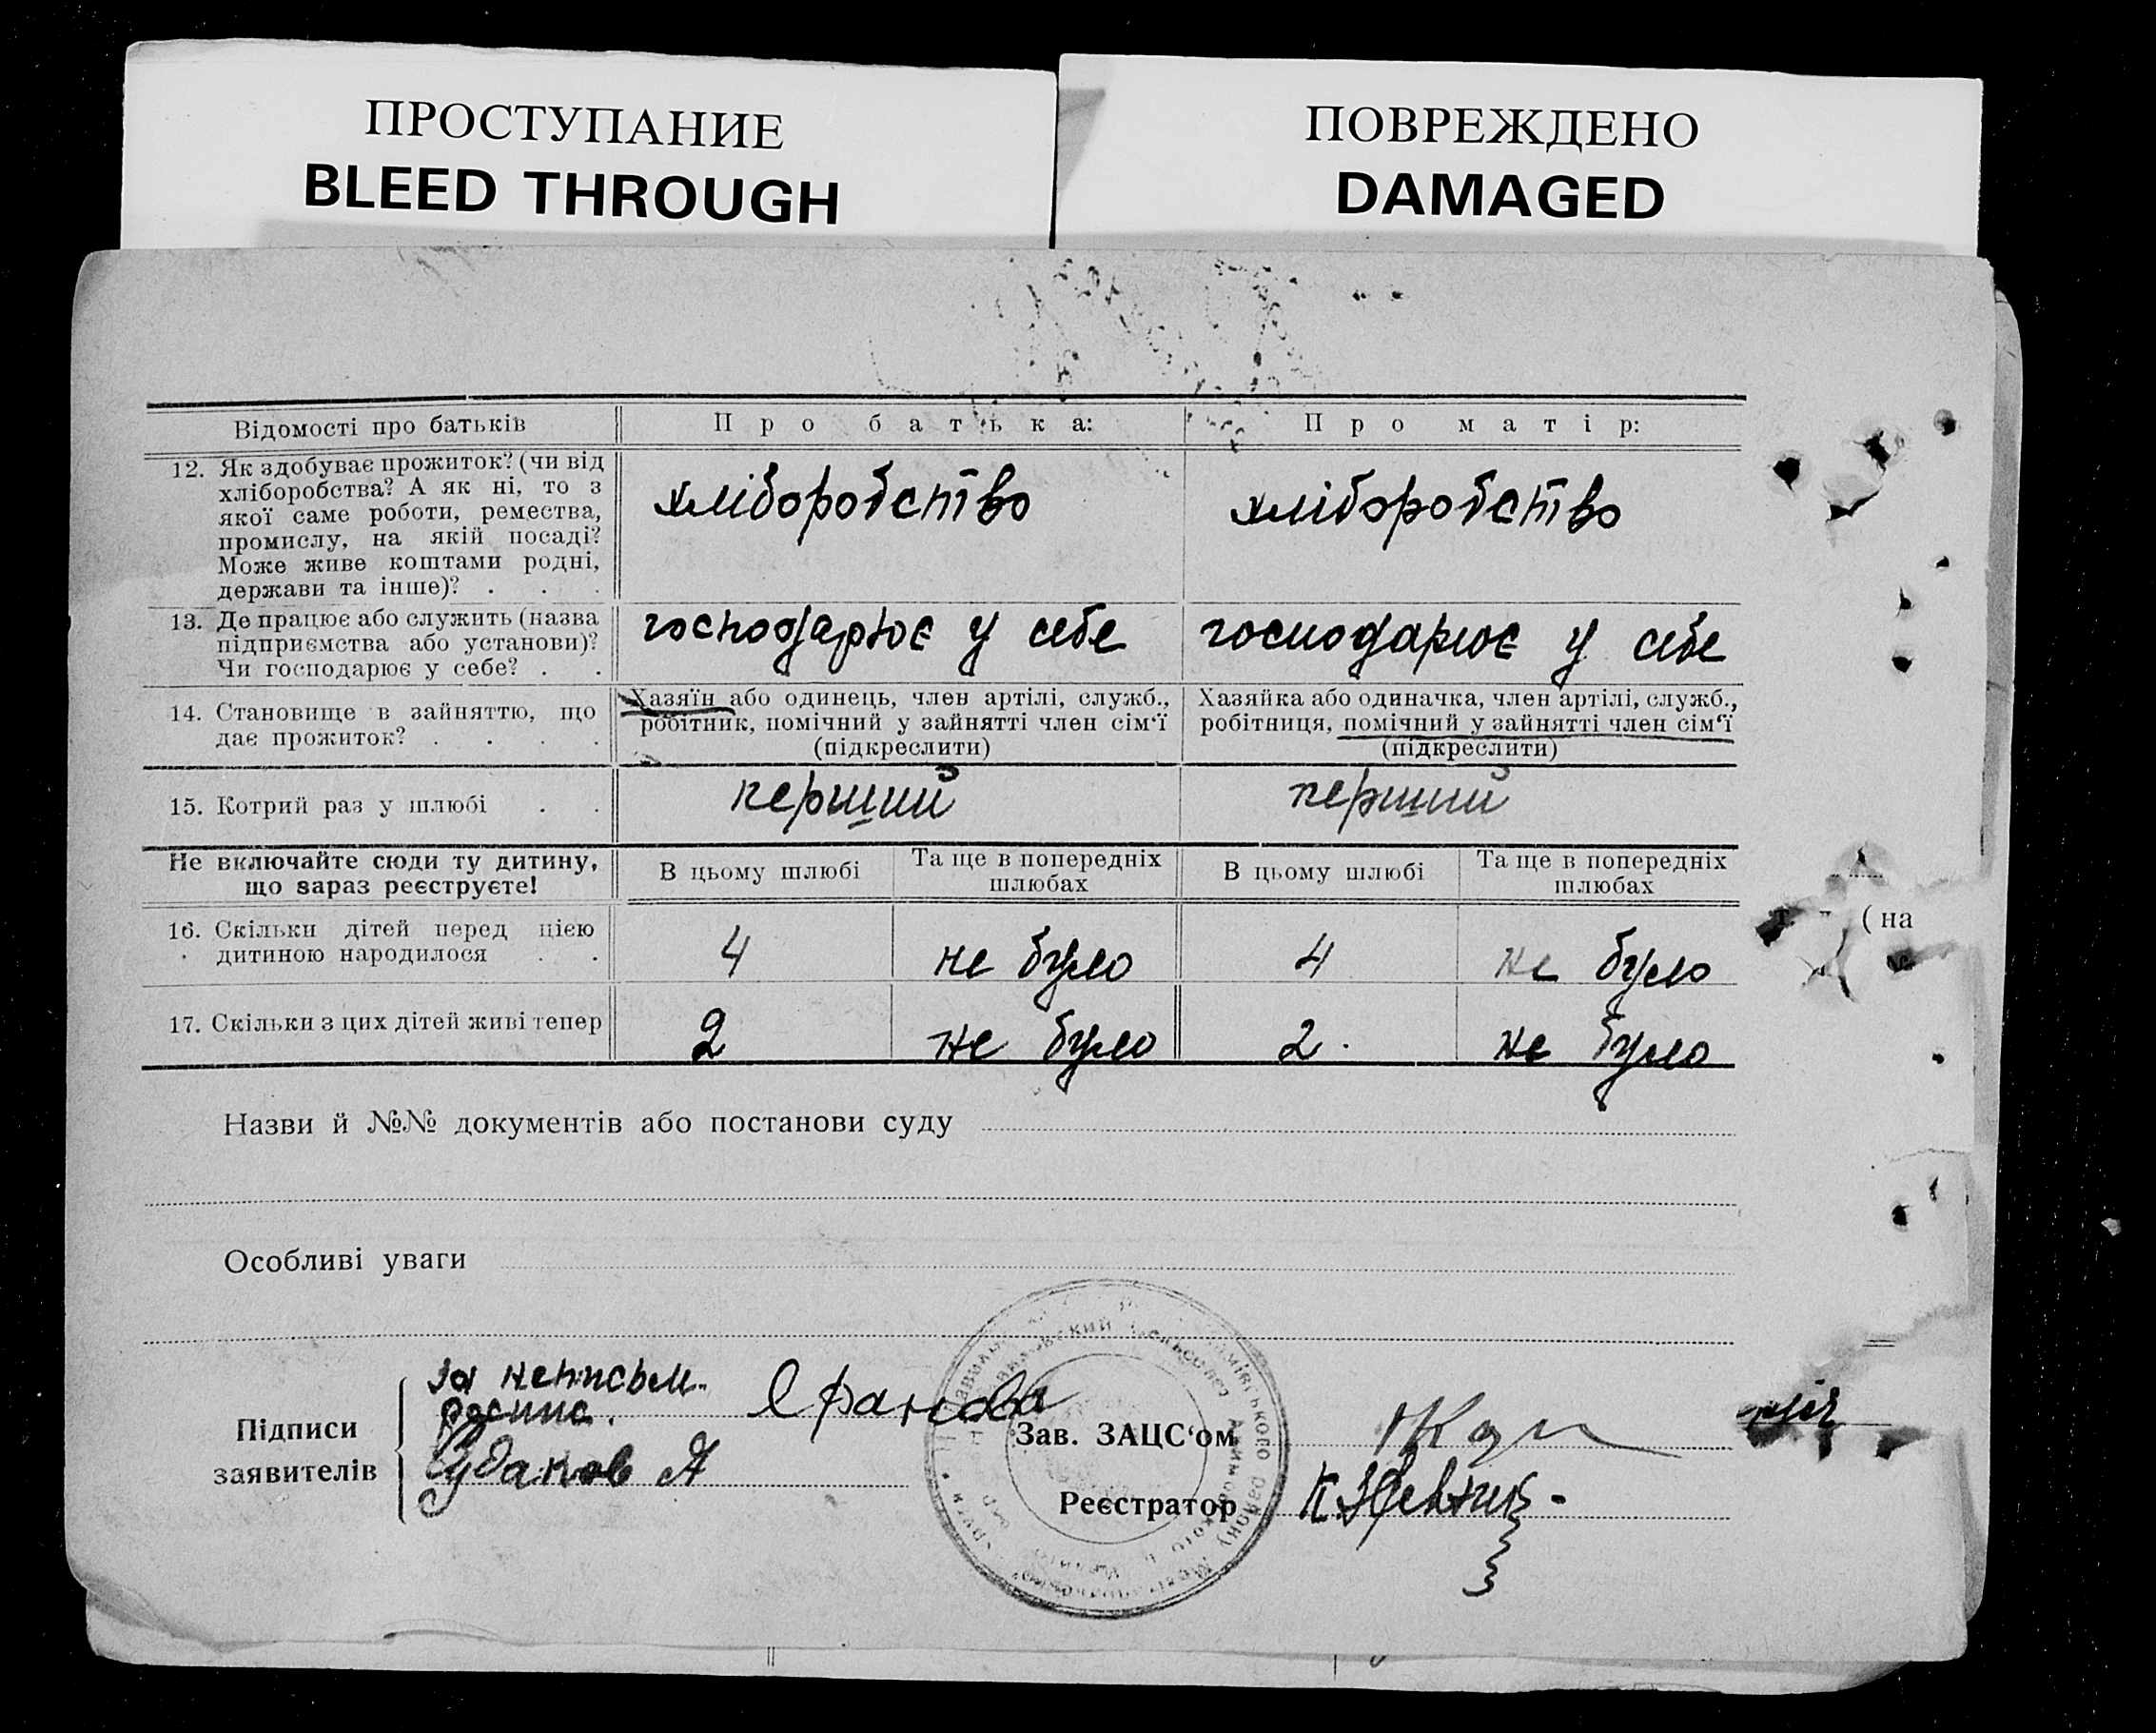 ПРОСТУПАНИЕ
BLEED THROUGH
ПОВРЕЖДЕНО
DAMAGED
Відомості про батьків
Про батька:
Про матір:
12. Як здобуває прожиток? (чи від
хліборобства? А як ні, то з
якої саме роботи, ремества,
промислу, на якій посаді?
Може живе коштами родні,
держави та інше)? . . .
хліборобство
хліборобство
13. Де працює або служить (назва
підприємства або установи)?
Чи господарює у себе? . .
господарює у себе
господарює у себе
14. Становище в зайняттю, що
дає прожиток? . . . .
Хазяїн або одинець, член артілі, служб.,
робітник, помічний у зайнятті член сім‘ї
(підкреслити)
Хазяйка або одиначка, член артілі, служб.,
робітниця, помічний у зайнятті член сім‘ї
(підкреслити)
15. Котрий раз у шлюбі . .
перший
перший
Не включайте сюди ту дитину,
що зараз реєструєте!
В цьому шлюбі
Та ще в попередніх
шлюбах
В цьому шлюбі
Та ще в попередніх
шлюбах
16. Скільки дітей перед цією
дитиною народилося . .
4
не було
4
не було
17. Скільки з цих дітей живі тепер
2
не було
2.
не було
( на
Назви й №№ документів або постанови суду
Особливі уваги
Підписи
заявителів
за неписьм.
Зав. ЗАЦС‘ом
Реєстратор